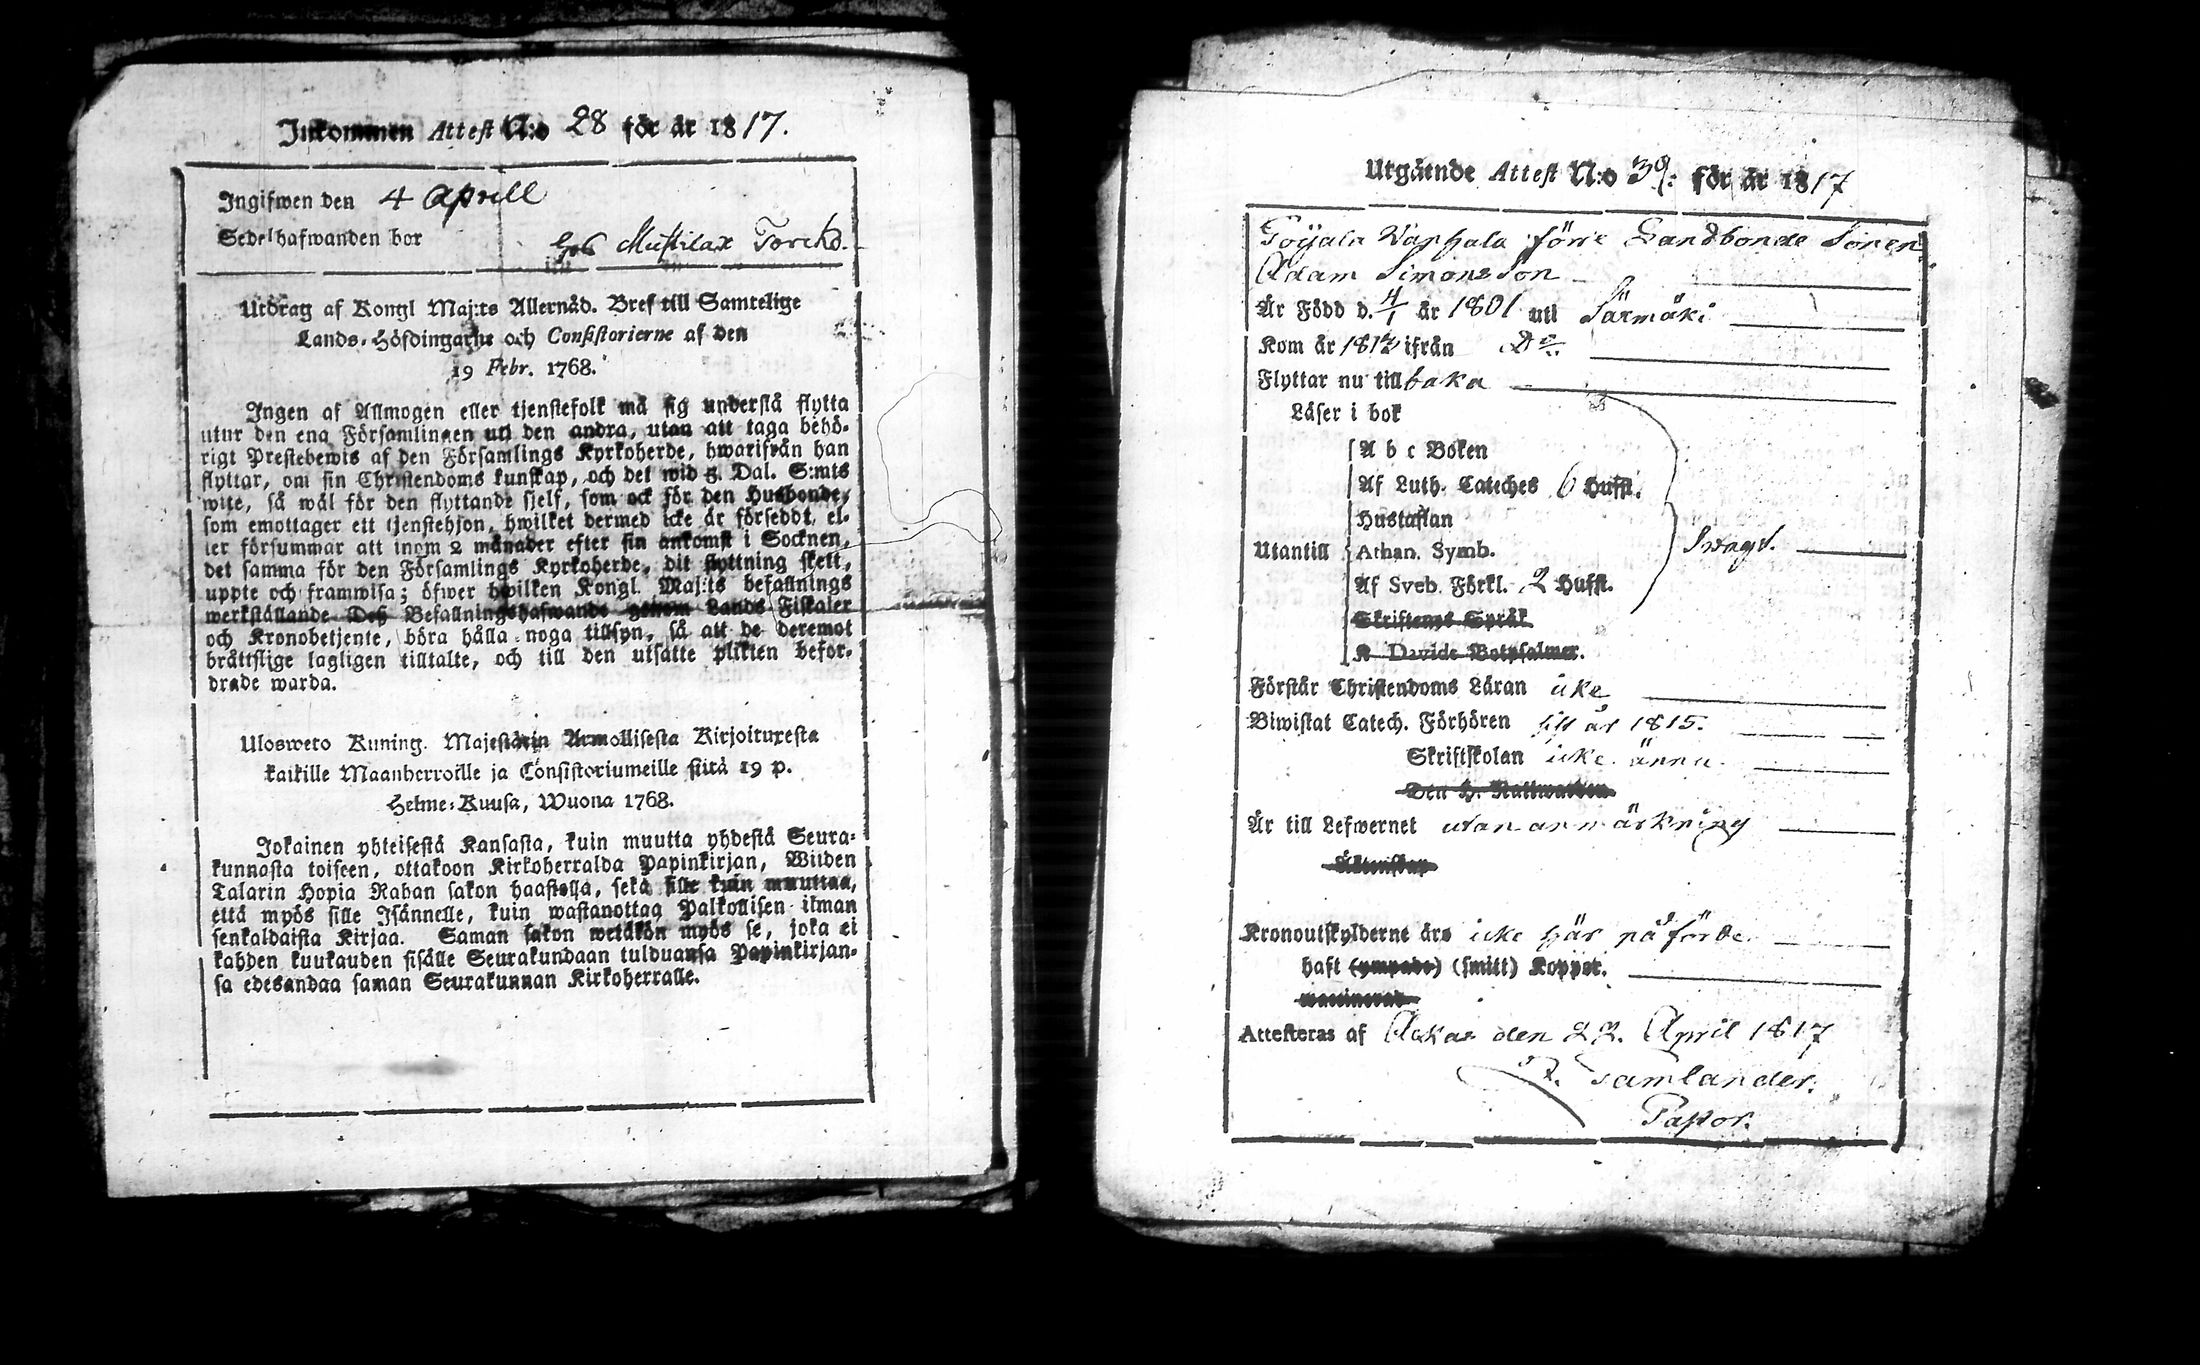 Inkommen Attest N:o 28 för år 1817.
Ingifwen den 4 Aprill
Sedelhafwanden bor hos Mustilax Torcko.
Utdrag af Kongl Maj:ts Allernåd. Bref till Samtelige
Lands-Höfdingarne och Consistorierne af den
19 Febr. 1768.
Ingen af Allmogen eller tjenstefolk må sig understå flytta
utur den ena Församlingen uti den andra, utan att taga behö-
rigt Prestebewis af den Församlings Kyrkoherde, hwarifrån han
flyttar, om sin Christendoms kunskap, och det wid 5. Dal. S:mts
wite, så wäl för den flyttande sjelf, som ock för den Husbonde,
som emottager ett tjenstehjon, hwilket dermed icke är förseddt, el-
ler försummar att inom 2 månader efter sin ankomst i Socknen,
det samma för den Församlings Kyrkoherde, dit flyttning skett,
uppte och framwisa; öfwer hwilken Kongl. Maj:ts befallnings
werkställande Deß Befallningshafwande genom Lands Fiskaler
och Kronobetjente, böra hålla noga tillsyn, så att de deremot
bråttslige lagligen tilltalte, och till den utsatte plikten befor-
drade warda.
Ulosweto Kuning. Majestätin Armollisesta Kirjoituxesta
kaikille Maanherroille ja Consistoriumeille siitä 19 p.
Helme-Kuusa, Wuona 1768.
Jokainen yhteisestä Kansasta, kuin muutta yhdestä Seura-
kunnasta toiseen, ottakoon Kirkoherralda Papinkirjan, Wiiden
Talarin Hopia Rahan sakon haastolla, sekä sille kuin muuttaa,
että myös sille Isännelle, kuin wastanottaa Palkollisen ilman
senkaldaista Kirjaa. Saman sakon wetäkön myös se, joka ei
kahden kuukauden sisälle Seurakundaan tulduansa Papinkirjan-
sa edesandaa saman Seurakunnan Kirkoherralle.
Utgående Attest N:o 39/: för år 1817
Toijala Warhala förre Landbonde Sonen
Adam Simonsson
Är Född d. 4/1 år 1801 uti Särmäki
Kom år 1812 ifrån D:o
Flyttar nu tillbaka
Läser i bok
A b c Boken
Af Luth. Cateches 6 Hufst.
Hustaflan
Utantill Athan. Symb. swagt.
Af Sveb. Förkl. 2 Hufst.
Skriftenes Språk
K Davids Botpsalmer.
Förstår Christendoms Läran icke
Biwistat Catech. Förhören till år 1815.
Skriftskolan icke ännu
Den H. Nattwarden
Är till Lefwernet utan anmärkning
Äktenskap
Kronoutskylderne äro icke här påförde.
haft (ympade) (smitt) Koppor.
waccinerad
Attesteras af Ackas den 22. April 1817
Tamlander.
Pastor.